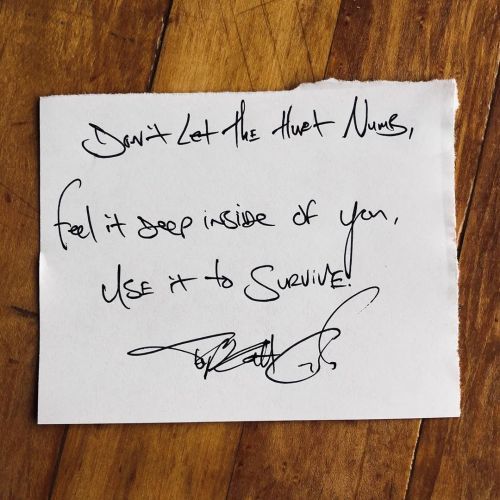 Don't Let the Hurt Numb,
feel it deep inside of you,
use it to survive!